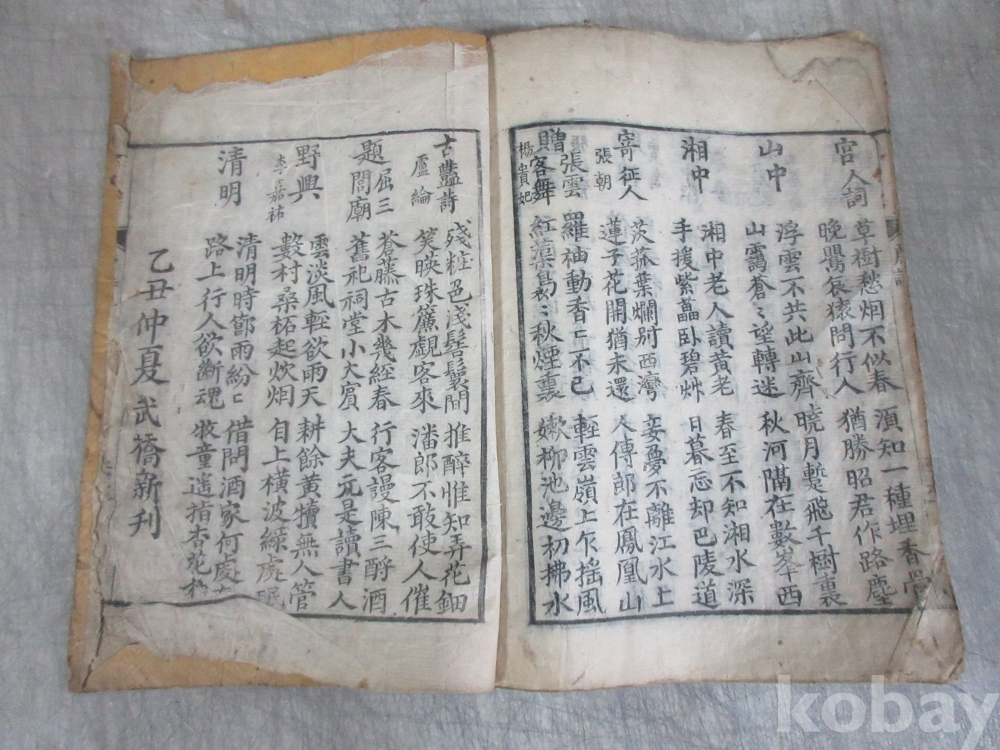 宮人詞
草樹愁烟不似春
晚鶯哀猿問行人
須知一種埋香骨
猶勝昭君作路塵
山中
浮雲不共此山齊
山靄蒼〻望轉迷
曉月暫飛千樹裏
秋河隔在數峯西
湘中
湘中老人讀黃老
手援紫藟臥碧艸
春至不知湘水深
日暮忘却巴陵道
寄征人
張朝
茨菰葉爛別西灣
蓮子花開猶未還
妾夢不離江水上
人傳郎在鳳凰山
贈張雲容舞
楊貴妃
羅袖動香〻不已
紅蕖裊〻秋煙裏
輕雲嶺上乍搖風
嫰柳池邊初拂水
古艶詩
盧綸
殘粧邑淺髻鬟間
笑暎珠簾覰客來
推醉惟知弄花鈿
潘郎不敢使人催
題屈三閭廟
蒼藤古木幾經春
舊祀祠堂小大賓
行客謾陳三酹酒
大夫元是讀書人
野興
李嘉祐
雲淡風輕欲雨天
數村桑柘起炊烟
耕餘黃犢無人管
自上橫波綠處眠
清明
清明時節雨紛〻
路上行人欲斷魂
借問酒家何處
牧童遥指杏花村
乙丑仲夏武橋新刊
kobay